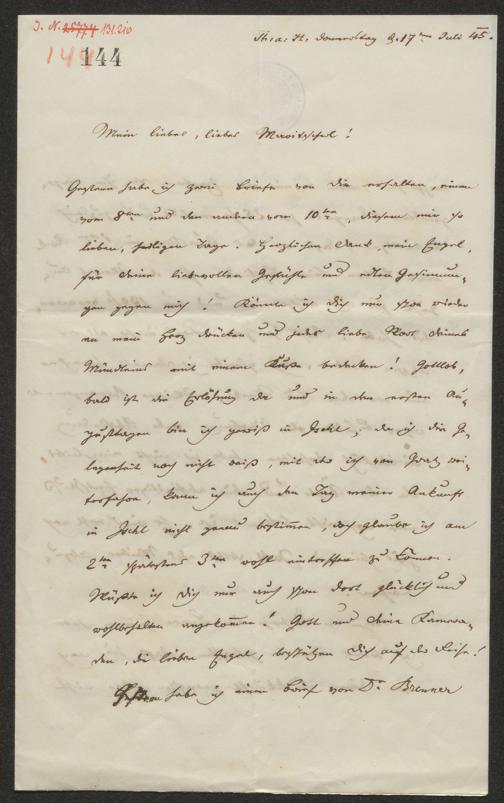 J. N. 25774 131.210
144
144
St: a: H: Donnerstag d. 17ten Juli 45.
Mein liebes, liebes Marvitscherl!
Gestern habe ich zwei Briefe von dir erhalten, einen
vom 8ten und den andern vom 10ten, diesem mir so
lieben, heiligen Tage. Herzlichen Dank, mein Engel,
für deine liebevollen Gefühle und edlen Gesinnun-
gen gegen mich! Könnte ich dich nur schon wieder
an mein Herz drücken und jedes liebe Wort deines
Mündleins mit einem Kusse bedecken! Gottlob,
bald ist die Erlösung da und in den ersten Au-
gusttagen bin ich gewiß in Ischl; da ich die Ge-
legenheit noch nicht weiß, mit der ich von Gratz wei-
terfahre, kann ich auch den Tag meiner Ankunft
in Ischl nicht genau bestimmen, doch glaube ich am
2ten spätestens 3ten wohl eintreffen zu können.
Wüßte ich dich nur auch schon dort glücklich und
wohlbehalten angekommen! Gott und deine Kamera-
den, die lieben Engel, beschützen dich auf der Reise!
Gestern habe ich einen Brief von Dr Brenner